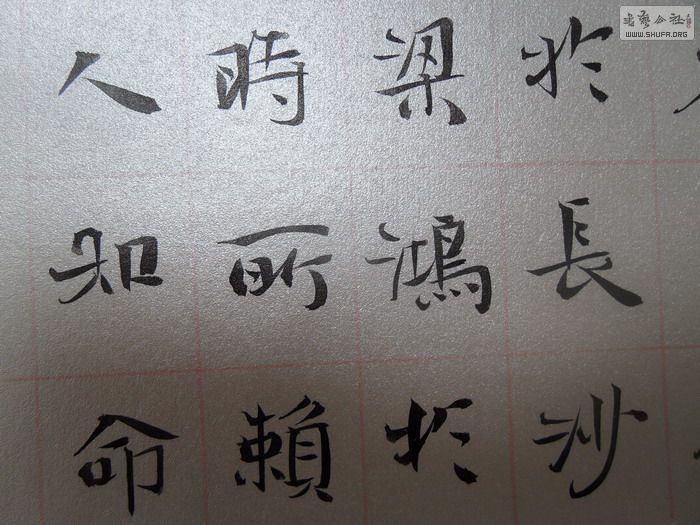 於長沙
梁鴻於
時所賴
人知命
书藝公社
WWW.SHUFA.ORG